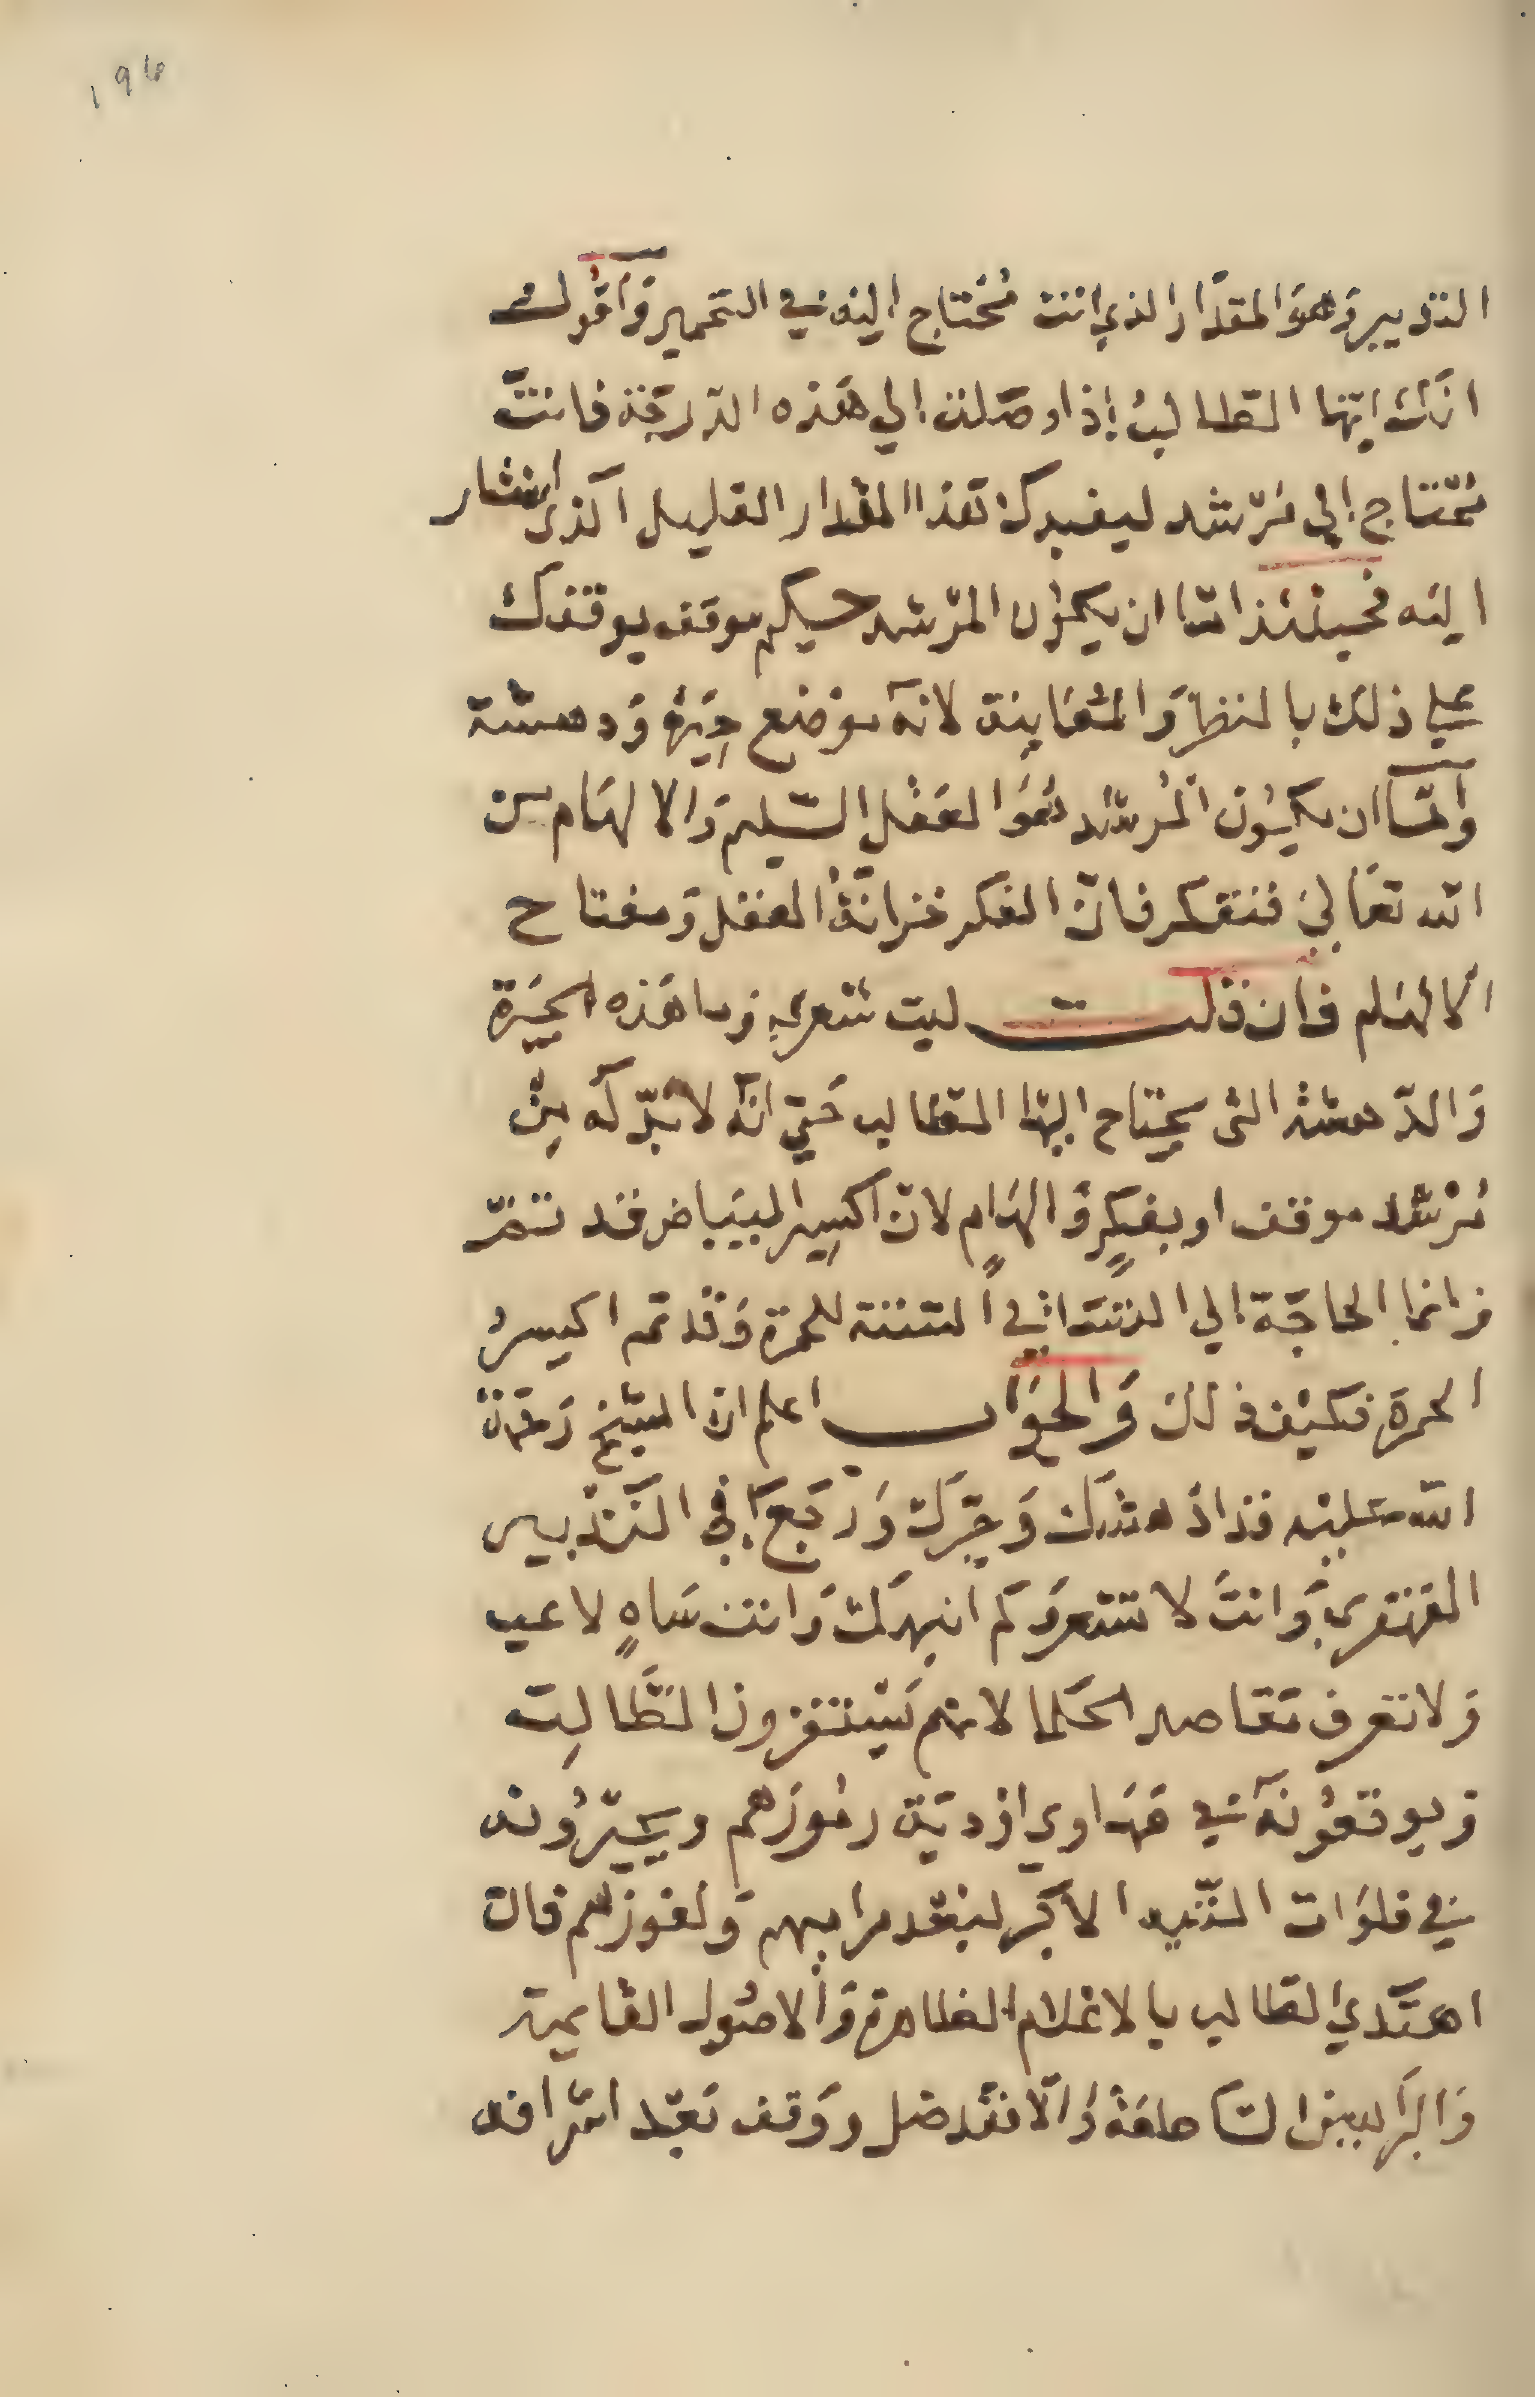 ١٩٤
التدبير وَهوَ المقدَار الذي انت مُحتاج اليه في التحمير وَاقُول
انك ايّها الطالب إذا وصَلت الي هَذه الدّرجَة فانتَ
مُحتاج إلي مُرشد ليفيدك هَذا المقدار القليل الذي اشار
اليه فحينئذ امّا ان يكون المرشد حكيم موقف يوقفك
علي ذلك بالنظر وَالمُعَاينة لانه موضع حيَرة وَدهشة
وَامّا ان يكُون المُرشد هُوَ العَقل السّليم وَالالهَام من
الله تعَالي فتفكر فانّ الفكر خزانةُ العقل وَمفتاح
الالهَام فان قلت ليت شعري وَما هَذه الحيَرة
وَالدّهشة التى يحتاج اليها الطالب حَتي انّه لا بُدّ له مِن
مُرشد موقف او بفكرٍ وَالهَامٍ لانّ اكسير البيَاض قد تمّ
وَانما الحاجَة إلي التسَاني التتنة للحمرة وَقد تم اكسير
الحمرَة فكيف ذلك وَالجوَاب اعلم انّ الشيخ رَحمَة
الله عَليه قد ادهشك وَحيّرك وَرجَعَ في التَدبير
القهقري وَانتَ لا تشعر وَكم انبهك وَانت سَاهٍ لاعب
وَلا تعرف مَقاصد الحكما لانهم يَستفزون الطَّالِبَ
وَيوقعُونه في مَهَاوي اودية رمُوزهم ويحيّرُونه
في فلوَات التّيه الاكبر لبُعْد مراميهم وَلغوزهم فان
اهتَدي الطالب بالاعْلام الظاهرة وَالاصُول القايمة
وَالبرَاهين السَاطعَة وَالّا فقد ضل ووَقف بَعْد اشرافه